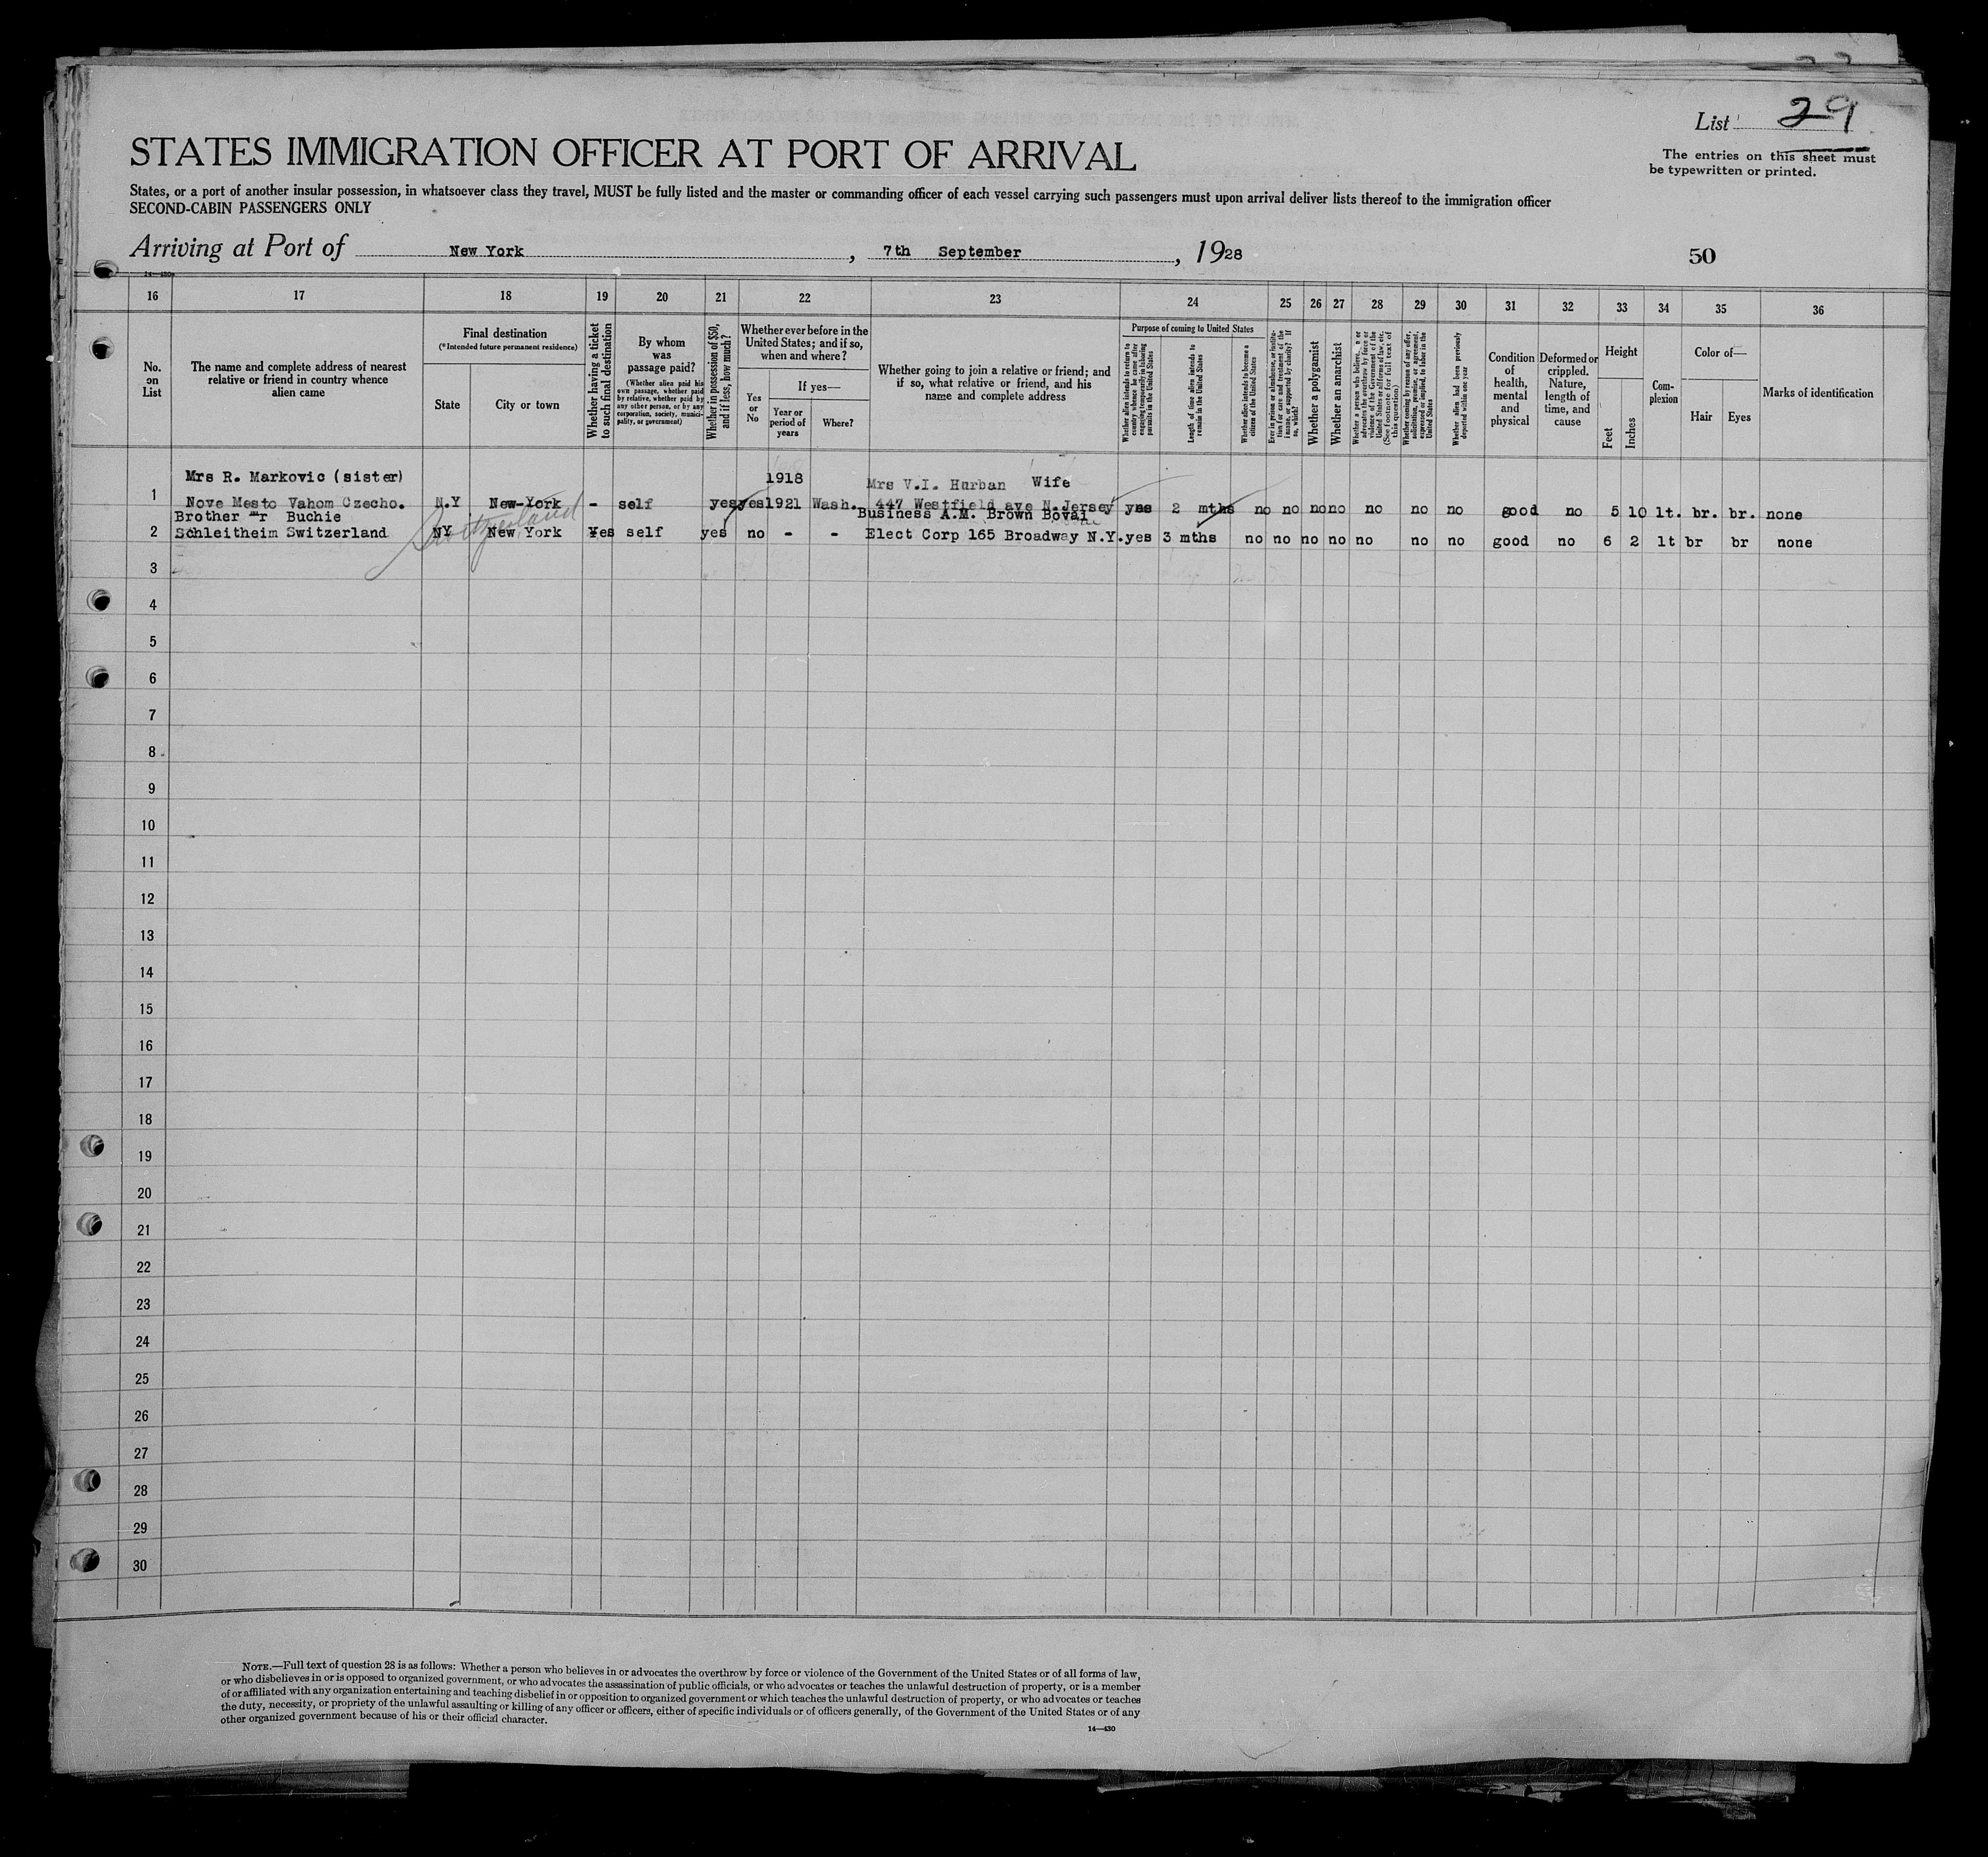 List 29
The entries on this sheet must
be typewritten or printed.
STATES IMMIGRATION OFFICER AT PORT OF ARRIVAL
States, or a port of another insular possession, in whatsoever class they travel, MUST be fully listed and the master or commanding officer of each vessel carrying such passengers must upon arrival deliver lists thereof to the immigration officer
SECOND-CABIN PASSENGERS ONLY
Arriving at Port of New York, 7th September, 1928
50
14-430
16 17 18 19 20 21 22 23 24 25 26 27 28 29 30 31 32 33 34 35 36
No.
on
List
The name and complete address of nearest
relative or friend in country whence
alien came
Final destination
(*Intended future permanent residence)
State
City or town
Whether having a ticket
to such final destination
By whom
was
passage paid?
(Whether alien paid his
own passage, whether paid
by relative, whether paid by
any other person, or by any
corporation, society, munici-
pality, or government)
Whether in possession of $50,
and if less, how much?
Whether ever before in the
United States; and if so,
when and where?
Yes
or
No
If yes—
Year or
period of
years
Where?
Whether going to join a relative or friend; and
if so, what relative or friend, and his
name and complete address
Purpose of coming to United States
Whether alien intends to return to
country whence he came after
engaging temporarily in laboring
pursuits in the United States
Length of time alien intends to
remain in the United States
Whether alien intends to become a
citizen of the United States
Ever in prison or almshouse, or institu-
tion for care and treatment of the
insane, or supported by charity? If
so, which?
Whether a polygamist
Whether an anarchist
Whether a person who believes in or
advocates the overthrow by force or
violence of the Government of the
United States or all forms of law, etc.
(See footnote for full text of
this question)
Whether coming by reason of any offer,
solicitation, promise, or agreement,
expressed or implied, to labor in the
United States
Whether alien had been previously
deported within one year
Condition
of
health,
mental
and
physical
Deformed or
crippled.
Nature,
length of
time, and
cause
Height
Feet
Inches
Com-
plexion
Color of—
Hair
Eyes
Marks of identification
Mrs R. Markovic (sister) 1918 Mrs V.I. Hurban Wife
1 Nove Mesto Vahom Czecho. N.Y New-York - self yes yes 1921 Wash. 447 Westfield ave N.Jersey yes 2 mths no no no no no no no good no 5 10 lt. br. br. none
Brother Mr Buchie Business A.M. Brown Bovai
2 Schleitheim Switzerland NY New York Yes self yes no - - Elect Corp 165 Broadway N.Y. yes 3 mths no no no no no no no good no 6 2 lt br br none
Switzerland
3
4
5
6
7
8
9
10
11
12
13
14
15
16
17
18
19
20
21
22
23
24
25
26
27
28
29
30
NOTE.—Full text of question 28 is as follows: Whether a person who believes in or advocates the overthrow by force or violence of the Government of the United States or of all forms of law,
or who disbelieves in or is opposed to organized government, or who advocates the assassination of public officials, or who advocates or teaches the unlawful destruction of property, or is a member
of or affiliated with any organization entertaining and teaching disbelief in or opposition to organized government or which teaches the unlawful destruction of property, or who advocates or teaches
the duty, necessity, or propriety of the unlawful assaulting or killing of any officer or officers, either of specific individuals or of officers generally, of the Government of the United States or of any
other organized government because of his or their official character.
14—430